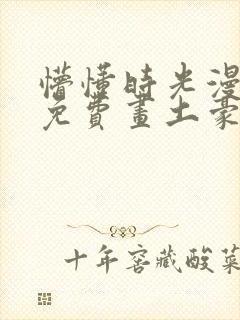 懵懂時光漫
免費畫土豪
十年窖藏酸菜